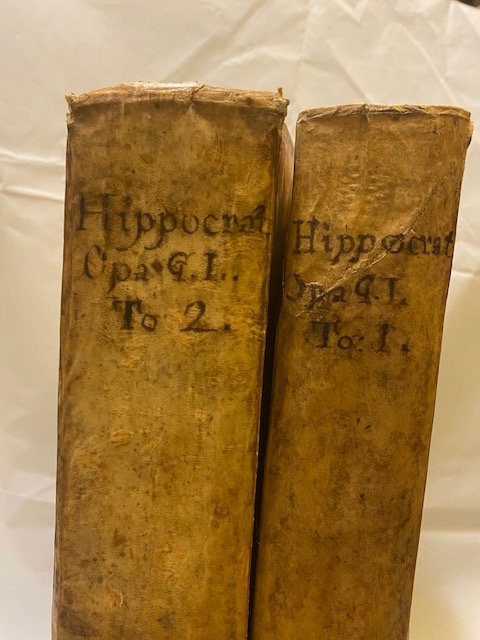 Hippocrat
Opa G. I.
To 2.
Hippocrat
Opa G. I.
To: 1.